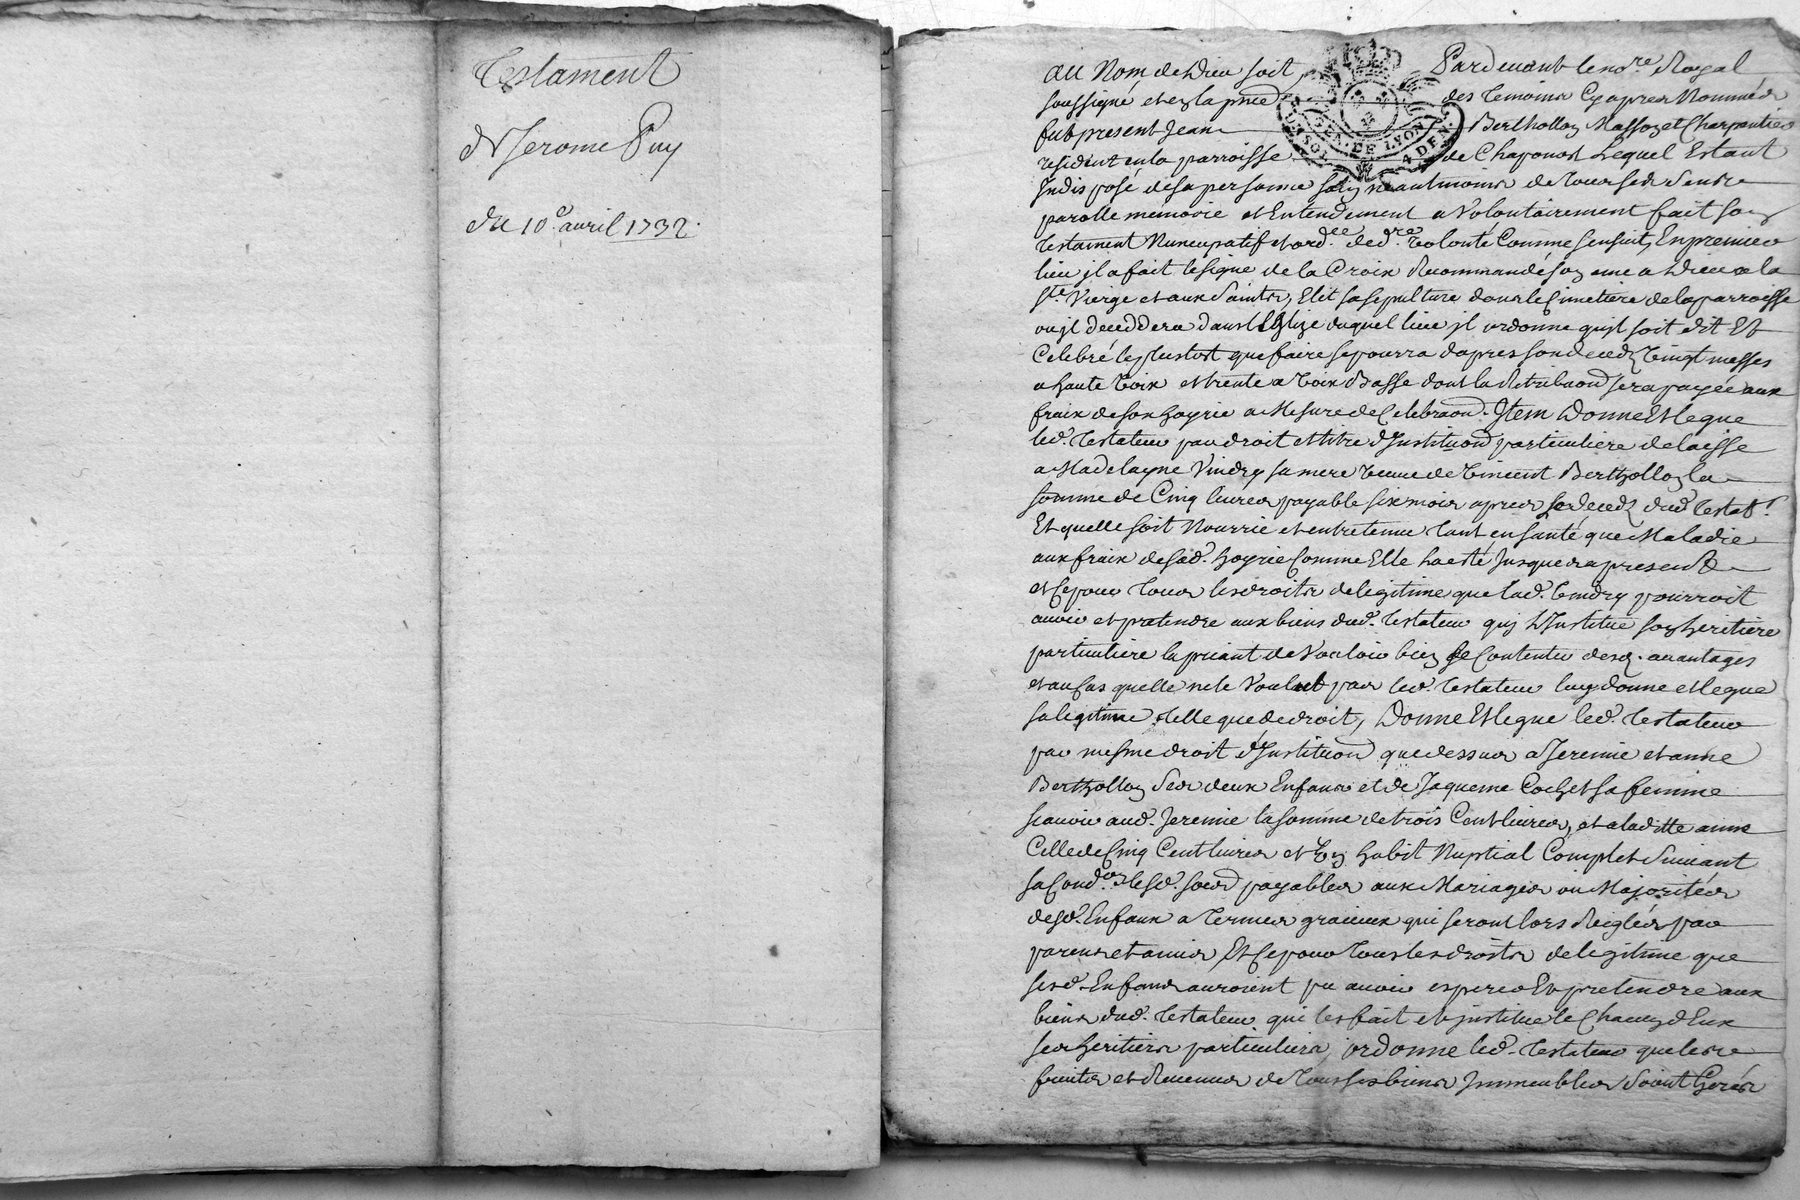 Testament
de Jerome Puy
du 10e avril 1732.
au Nom de Dieu soit Pardevant le nore Royal
soussigné et en la pnce des temoins Cy apres Nommés
fut present Jean Berthollon Masson et Charpentier
resident en la parroisse de Chaponost Lequel Estant
Indisposé de sa personne sain neantmoins de tous ses Sens
parolle memoire et Entendement a Volontairement fait son
testament Nuncupatif et ordce de dre volonté Comme sensuit, En premier
lieu jl a fait le signe de la Croix Recommandé son ame a Dieu a la
Ste Vierge et aux Saints, Elit sa sepulture dans le Cimetiere de la parroisse
ou jl deceddera dans lEglize duquel lieu jl ordonne qujl soit dit Et
Celebré le plustost que faire se pourra dapres son deced vingt messes
a haute voix et trente a voix Basse dont la Retribaon sera payée aux
fraix de son hoyrie a Mesure de Celebraon. Jtem Donne Et legue
led. testateur par droit et titre d'Jnstituon particuliere delaisse
a Madelayne Vindry sa mere veuve de vincent Berthollon la
somme de Cinq livres payable six mois apres le deced dud testatr.
Et quelle soit Nourrie et entretenue tant en santé que Maladie
aux fraix de sad. hoyrie Comme Elle ha esté Jusques a present
et Ce pour tous les droits de legitime que lad. Vindry pourroit
avoir et pretendre aux biens dud. testateur quj L'Jnstitue son heritiere
particuliere la priant de Vouloir bien se Contenter desd. avantages
et au Cas quelle ne le Voulut pas led. testateur luy donne et legue
sa legitime telle que de droit, Donne Et legue led. testateur
par mesme droit d'Jnstituon que dessus a Jeremie et anne
Berthollon Ses deux Enfans et de Jaqueme Cochet sa femme
scavoir aud. Jeremie la somme de trois Cent livres, et a laditte anne
Celle de Cinq Cent livres et Un habit Nuptial Complet Suivant
sa Condon lesd. payables aux Mariages ou Majorités
desd. Enfans a termes gracieux qui seront lors Reiglés par
parens et amis Et Ce pour tous les droits de legitime que
sesd. Enfans auroient pu avoir esperer Et pretendre aux
biens dud. testateur qui les fait et jnstitue le Chacun d'Eux
ses heritiers particuliers, ordonne led. testateur que les
fruits et Revenus de tous ses biens Jmmeubles Soient Gerés
GEN. DE LYON
4 DEN.